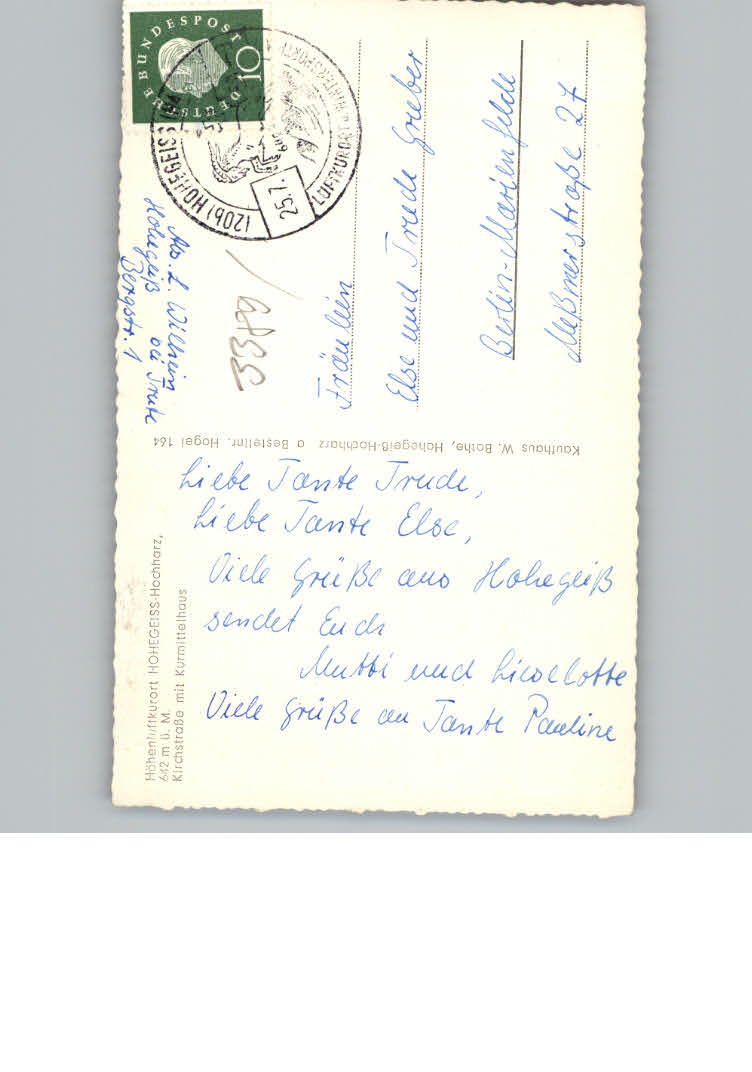 Liebe Tante Trude,
Liebe Tante Else,
Viele Grüße aus Hohegeiß
sendet Euch
Mutti und Liselotte
Viele Grüße an Tante Pauline
Höhenluftkurort HOHEGEISS-Hochharz,
642 m ü. M.
Kirchstraße mit Kurmittelhaus
Kaufhaus W. Bothe, Hohegeiß-Hochharz a Bestellnr. Hogei 164
Abs. L. Wilhelm
Hohegeiß bei Trute
Bergstr. 1
DEUTSCHE BUNDESPOST
10
(20b) HOHEGEISS
25.7.
LUFTKURORT
Fräulein
Else und Trude Grieber
Berlin-Marienfelde
Meßmerstraße 27